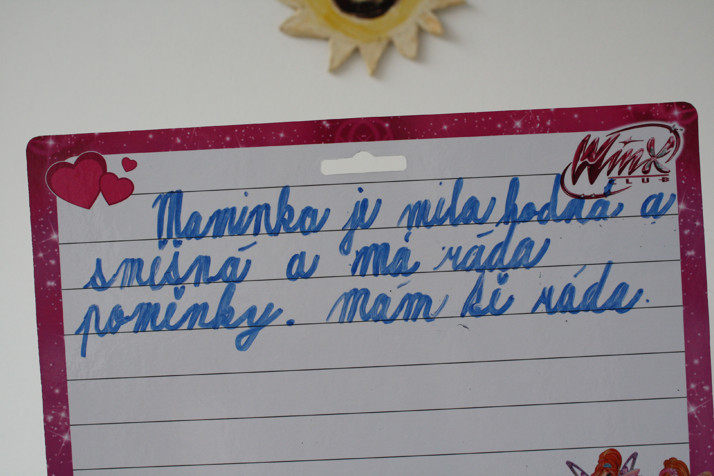 Winx
CLUB
Maminka ji mila hodná a
směšná a má ráda
poměnky. Mám ti ráda.